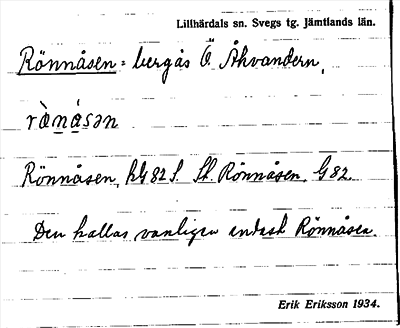 Lillhärdals sn. Svegs tg. Jämtlands län.
Rönnåsen = bergås Ö. Åkvandern,
rὰ̀nás̱ən
Rönnåsen, hG 82 S. Sk. Rönnåsen, G 82.
Den kallas vanligen endast Rönnåsen.
Erik Eriksson 1934.